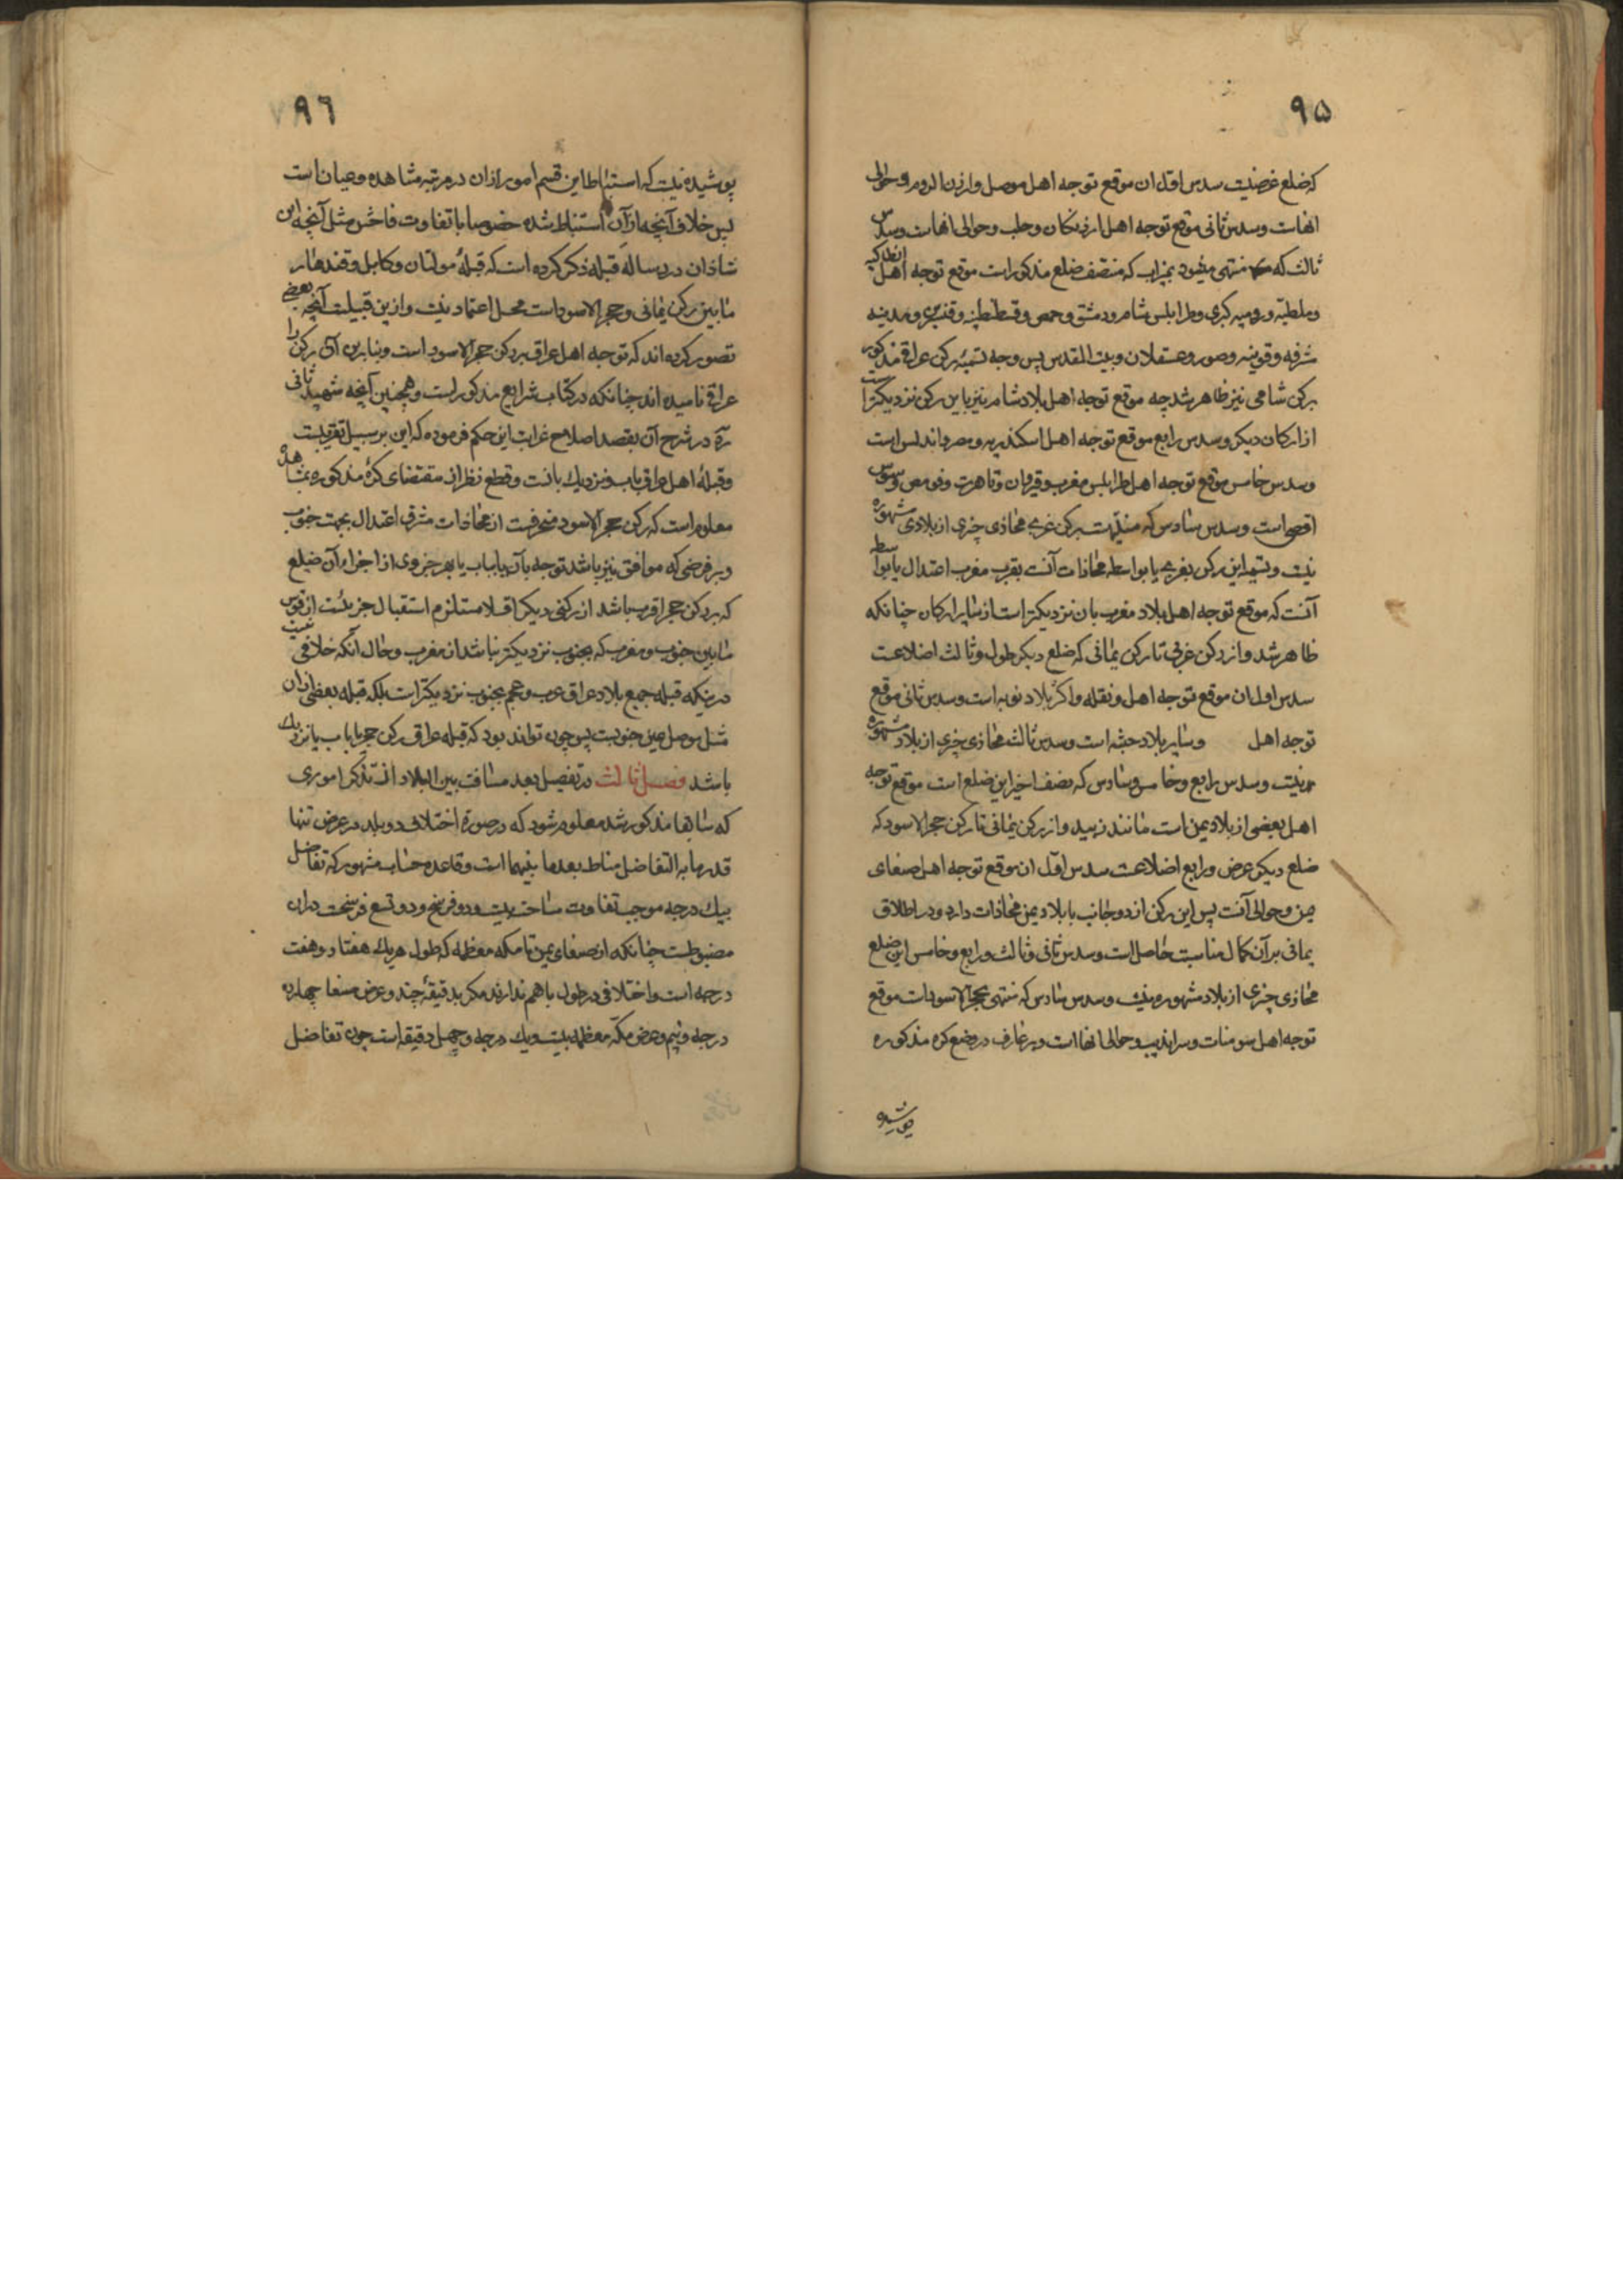 ۹۵
که ضلع عرضیست سدس اول ان موقع توجه اهل موصل وارزن الروم وحوالی
انهاست وسدس ثانی موقع توجه اهل ارزنکان وحلب وحوالی انهاست وسدس
ثالث که منتهی میشود بمیزاب که منتصف ضلع مذکورست موقع توجه اهل انطاکیه
وملطیه ورومیه کبری وطرابلس شام ودمشق وحمص وقسطنطنیه و ومدینه
مشرفه وقونیه وصور وعسقلان وبیت المقدس پس وجه تسمیه رکن عراقی مذکور
برکن شامی نیز ظاهر شد چه موقع توجه اهل بلاد شام نیز باین رکن نزدیکتر است
از ارکان دیکر وسدس رابع موقع توجه اهل اسکندریه ومصر واندلس است
وسدس خامس موقع توجه اهل طرابلس مغرب وقیروان وتاهرت وسوس
اقصی است وسدس سادس که منتهیست برکن غربی محاذی چیزی از بلادی مشهوره
نیست وتسمیه این رکن بغربی یا بواسطه محاذات آنست بقرب مغرب اعتدال یا بواسطه
آنست که موقع توجه اهل بلاد مغرب بان نزدیکتر است از سایر ارکان چنانکه
ظاهر شد واز رکن غربی تا رکن یمانی که ضلع دیکر طول وثالث اضلاعست
سدس اول ان موقع توجه اهل ونقله واکثر بلاد نوبه است وسدس ثانی موقع
توجه اهل وسایر بلاد حبشه است وسدس ثالث محاذی چیزی از بلاد مشهوره
نیست وسدس رابع وخامس وسادس که نصف اخیر این ضلع است موقع توجه
اهل بعضی از بلاد یمن است مانند زبید واز رکن یمانی تا رکن حجر الاسود که
ضلع دیکر عرض ورابع اضلاعست سدس اول ان موقع توجه اهل صنعای
یمن وحوالی آنست پس این رکن از دو جانب با بلاد یمن محاذات دارد ودر اطلاق
یمانی بر آن کمال مناسبت حاصل است وسدس ثانی وثالث ورابع وخامس این ضلع
محاذی چیزی از بلاد مشهوره نیست وسدس سادس که منتهی بحجر الاسودست موقع
توجه اهل سومنات وسراندیب وحوالی انها است وبر عارف در وضع کره مذکوره
پوشیده
۹۶
پوشیده نیست که استنباط این قسم امور ازان در مرتبه مشاهده وعیان است
پس خلاف آنچه از آن استنباط شده خصوصا با تفاوت فاحش مثل آنچه ابن
شاذان در رساله قبله ذکر کرده است که قبله مولتان وکابل وقندهار
مابین رکن یمانی وحجر الاسود است محل اعتماد نیست وازین قبیلست آنچه بعضی
تصور کرده اند که توجه اهل عراق برکن حجر الاسود است وبنابرین آن رکن را
عراقی نامیده اند چنانکه در کتاب شرایع مذکور است وهمچنین آنچه شهید ثانی
ره در شرح آن بقصد اصلاح غرابت این حکم فرموده که این بر سبیل تقریبست
وقبله اهل عراق باب ونزدیک بانست وقطع نظر از مقتضای کره مذکوره بمشاهده
معلوم است که رکن حجر الاسود منحرفست از محاذات مشرق اعتدال بجهت جنوب
وبر فرضی که موافق نیز باشد توجه بآن یا بباب یا بهر جزوی از اجزاء آن ضلع
که برکن حجر اقرب باشد از رکنی دیکر اقلا مستلزم استقبال جزئیست از قوس
مابین جنوب ومغرب که بجنوب نزدیکتر نباشد از مغرب وحال آنکه خلافی نیست
در اینکه قبله جمیع بلاد عراق عرب وعجم بجنوب نزدیکتر است بلکه قبله بعضی ازان
مثل موصل عین جنوبست پس چون تواند بود که قبله عراق رکن حجر یا باب یا نزدیک
باشد فصل ثالث در تفصیل بعد مسافت بین البلاد از تذکر اموری
که سابقا مذکور شد معلوم میشود که در صورة اختلاف دو بلد در عرض تنها
قدر ما به التفاضل مناط بعد ما بینهما است وقاعده حساب مشهور که تفاضل
بیک درجه موجب تفاوت مسافت بیست ودو فرسخ ودو تسع فرسخست دران
مضبوطست چنانکه از صنعای یمن تا مکه معظمه که طول هریک هفتاد وهفت
درجه است واختلافی در طول باهم ندارند مکر بدقیقه چند وعرض صنعا چهارده
درجه ونیم وعرض مکه معظمه بیست ویک درجه وچهل دقیقه است چون تفاضل